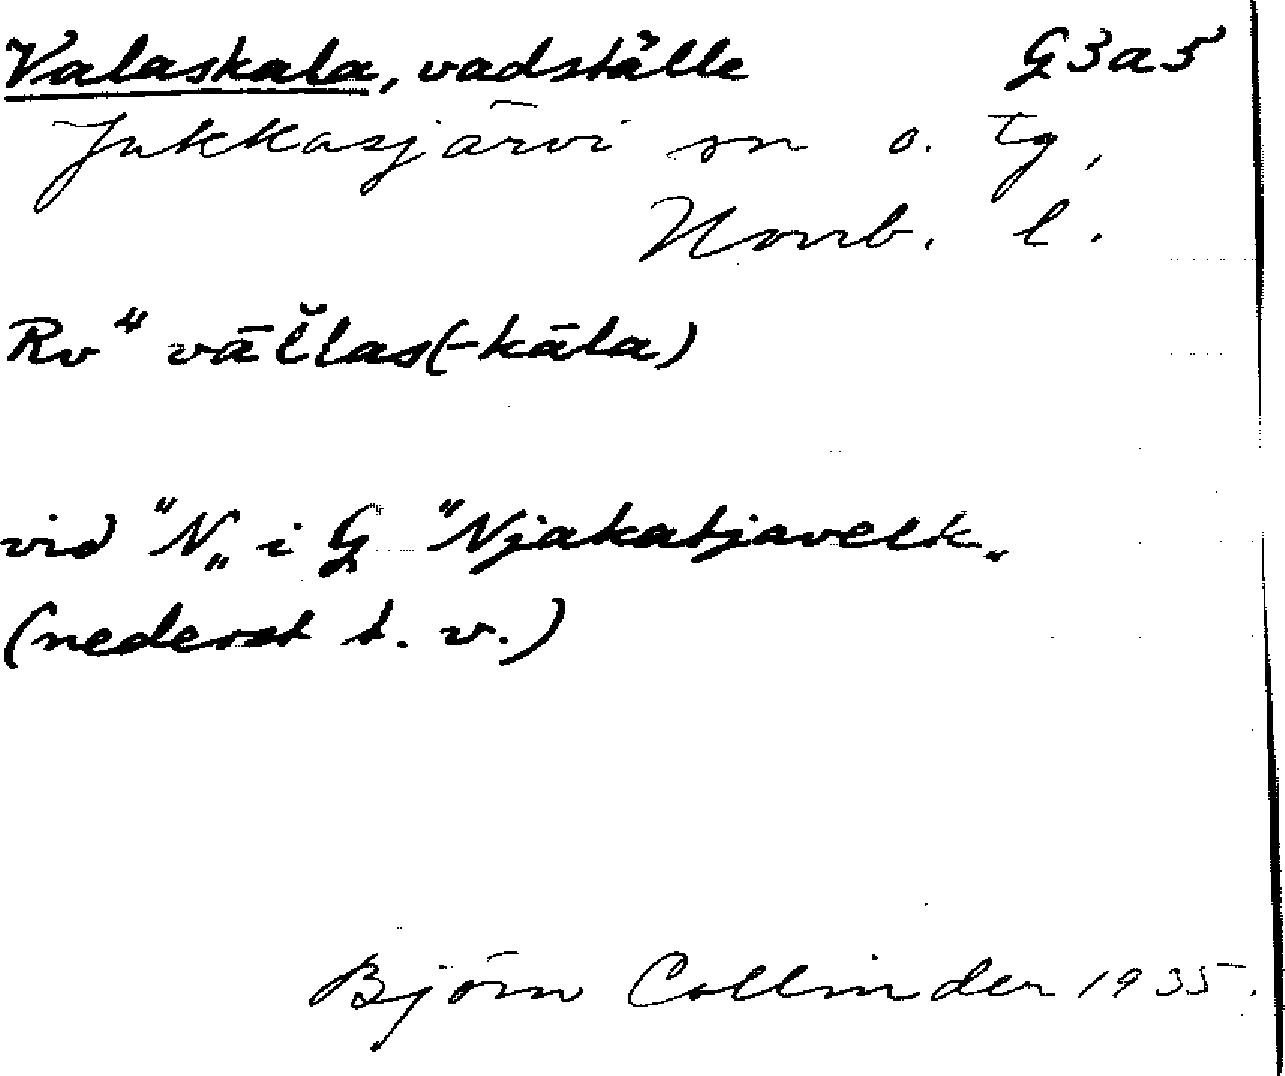 Valaskala, vadställe G3a5
Jukkasjärvi sn o. tg,
Norrb. l.
Rv" vāl̆las(-kāla)
vid "N„ i G "Njakatjavelk„
(nederst t. v.)
Björn Collinder 1935.